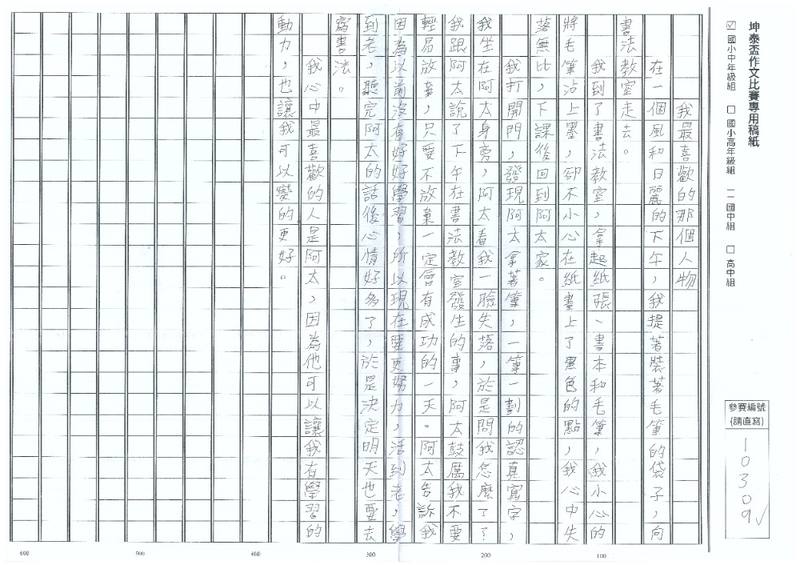 坤泰盃作文比賽專用稿紙
☑ 國小中年級組 □ 國小高年級組 □ 國中組 □ 高中組
參賽編號
(請直寫)
10309
我最喜歡的那個人物
在一個風和日麗的下午，我提著裝著毛筆的袋子，向
書法教室走去。
我到了書法教室，拿起紙張、書本和毛筆，我小心的
將毛筆沾上墨，卻不小心在紙畫上了黑色的點，我心中失
落無比，下課後回到阿太家。
我打開門，發現阿太拿著筆，一筆一劃的認真寫字，
我坐在阿太身旁，阿太看我一臉失落，於是問我怎麼了？
我跟阿太說了下午在書法教室發生的事，阿太鼓厲我不要
輕易放棄，只要不放棄一定會有成功的一天。阿太告訴我
因為以前沒有好好學習，所以現在要更努力，活到老，學
到老，聽完阿太的話後心情好多了，於是決定明天也要去
寫書法。
我心中最喜歡的人是阿太，因為他可以讓我有學習的
動力，也讓我可以變的更好。
100
200
300
400
500
600